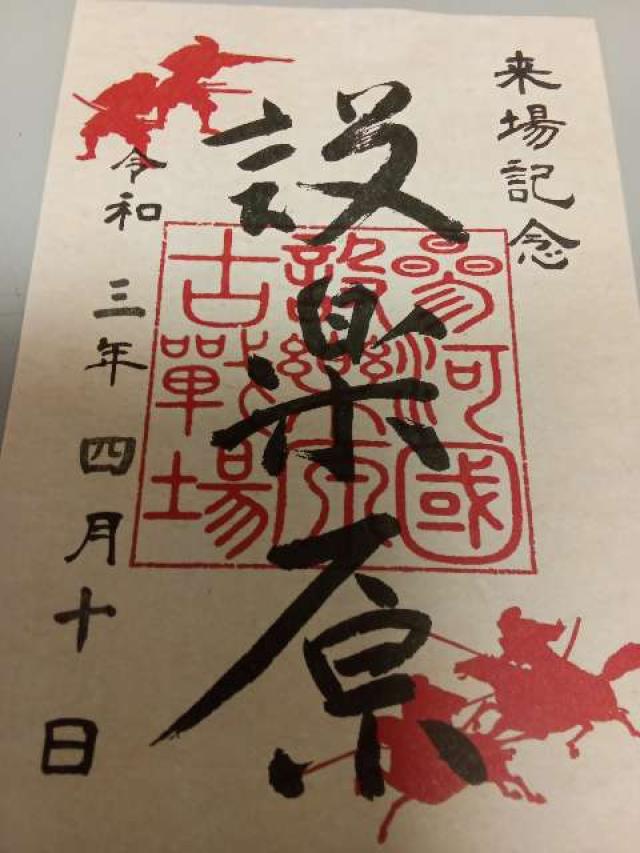 来場記念
設楽原
參河國
設樂原
古戰場
令和三年四月十日